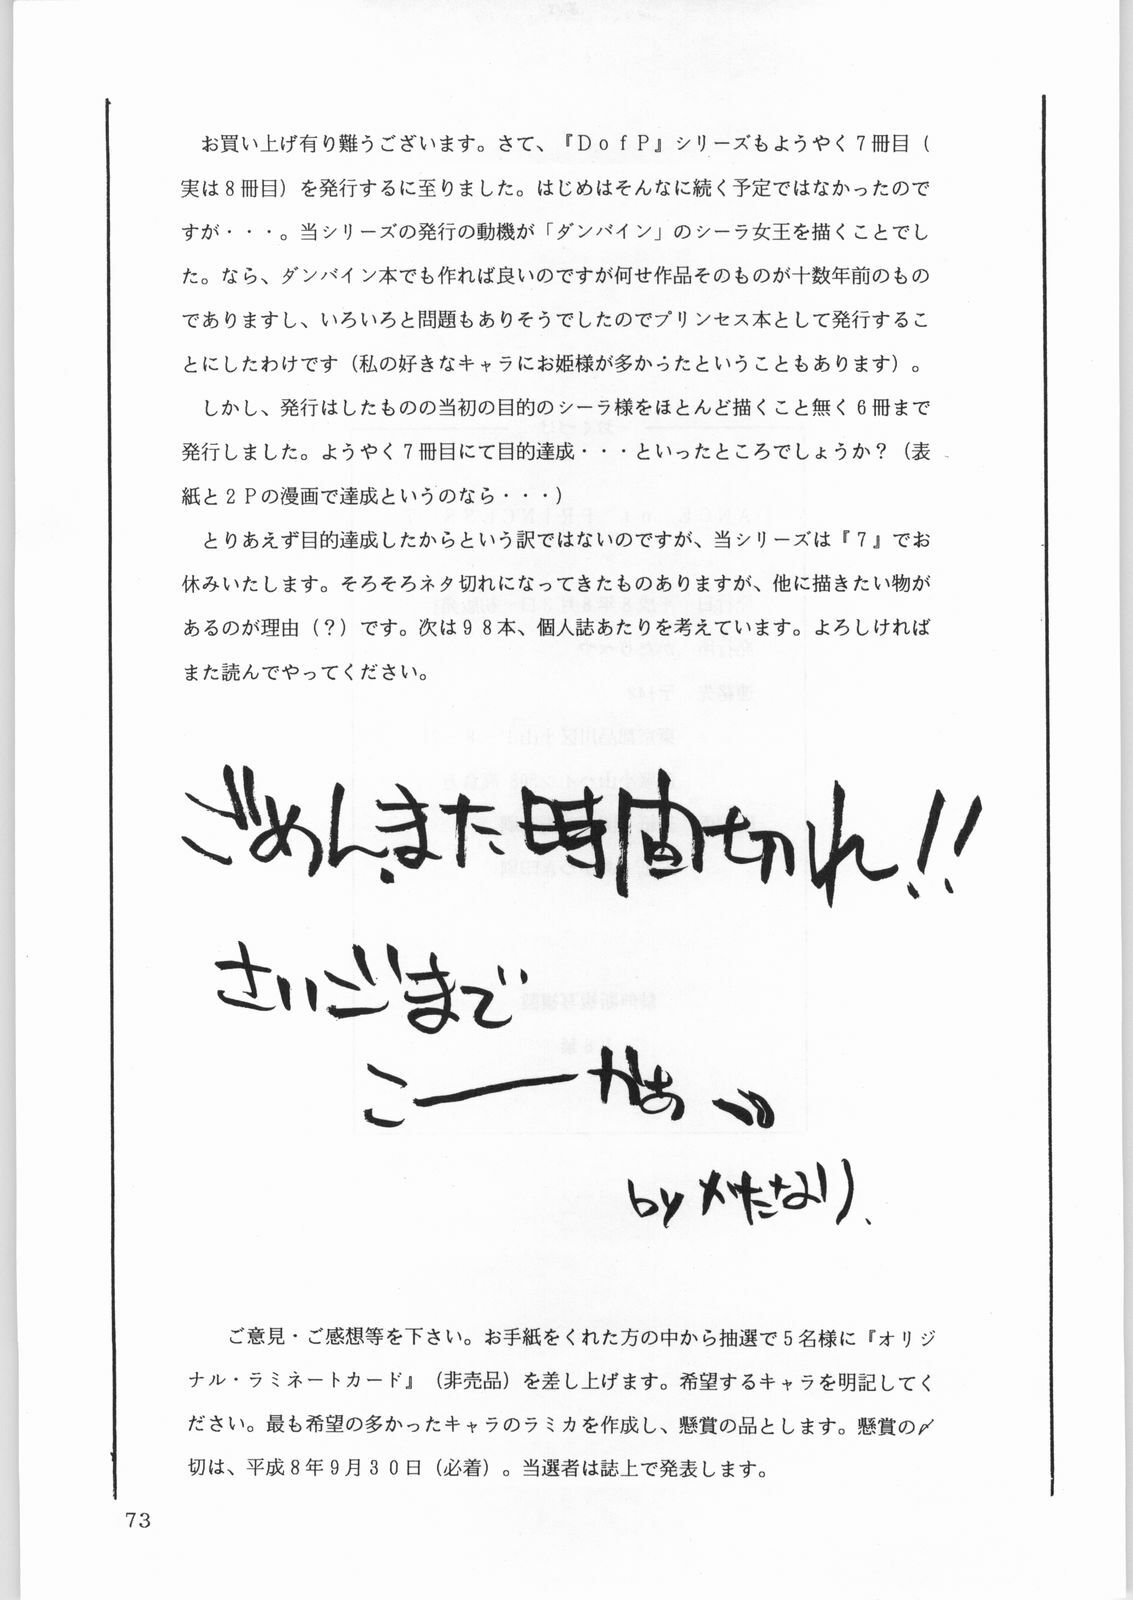 お買い上げ有り難うございます。さて、『ＤｏｆＰ』シリーズもようやく７冊目（
実は８冊目）を発行するに至りました。はじめはそんなに続く予定ではなかったので
すが・・・。当シリーズの発行の動機が「ダンバイン」のシーラ女王を描くことでし
た。なら、ダンバイン本でも作れば良いのですが何せ作品そのものが十数年前のもの
でありますし、いろいろと問題もありそうでしたのでプリンセス本として発行するこ
とにしたわけです（私の好きなキャラにお姫様が多かったということもあります）。
しかし、発行はしたものの当初の目的のシーラ様をほとんど描くこと無く６冊まで
発行しました。ようやく７冊目にて目的達成・・・といったところでしょうか？（表
紙と２Ｐの漫画で達成というのなら・・・）
とりあえず目的達成したからという訳ではないのですが、当シリーズは『７』でお
休みいたします。そろそろネタ切れになってきたものありますが、他に描きたい物が
あるのが理由（？）です。次は９８本、個人誌あたりを考えています。よろしければ
また読んでやってください。
ごめんまた時間切れ!!
さいごまで
こーかぁ
by かたなり、
ご意見・ご感想等を下さい。お手紙をくれた方の中から抽選で５名様に『オリジ
ナル・ラミネートカード』（非売品）を差し上げます。希望するキャラを明記してく
ださい。最も希望の多かったキャラのラミカを作成し、懸賞の品とします。懸賞の〆
切は、平成８年９月３０日（必着）。当選者は誌上で発表します。
73